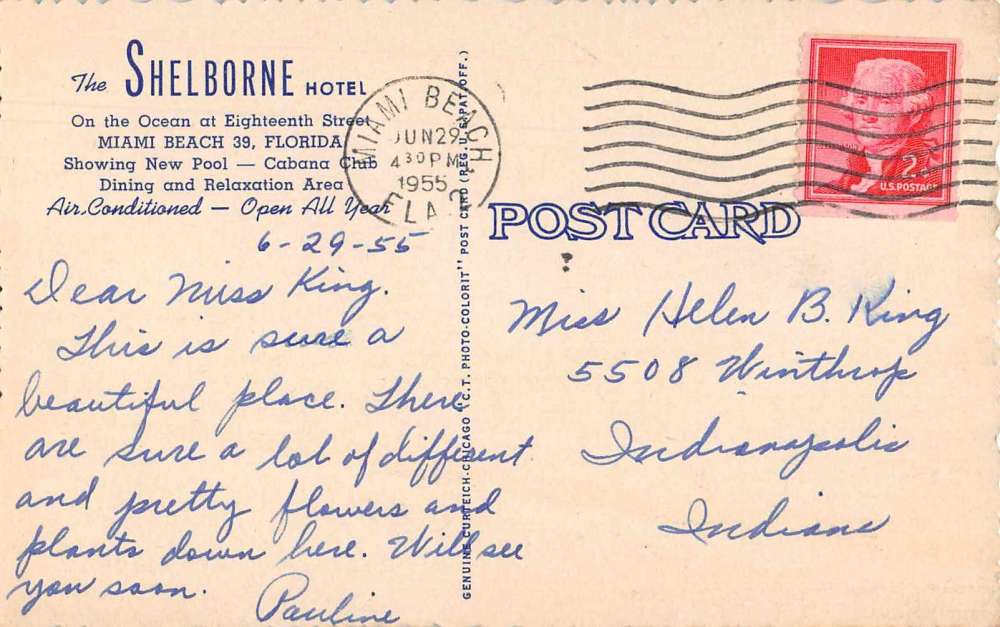 The SHELBORNE HOTEL
On the Ocean at Eighteenth Street
MIAMI BEACH 39, FLORIDA
Showing New Pool — Cabana Club
Dining and Relaxation Area
Air.Conditioned — Open All Year
MIAMI BEACH
JUN 29
4 30 PM
1955
FLA.
2¢
U.S. POSTAGE
POST CARD
GENUINE CURTEICH-CHICAGO "C.T. PHOTO-COLORIT" POST CARD (REG. U.S. PAT. OFF.)
6-29-55
Dear Miss King.
This is sure a
beautiful place. There
are sure a lot of different
and pretty flowers and
plants down here. Will see
you soon.
Pauline
Miss Helen B. King
5508 Winthrop
Indianapolis
Indiana